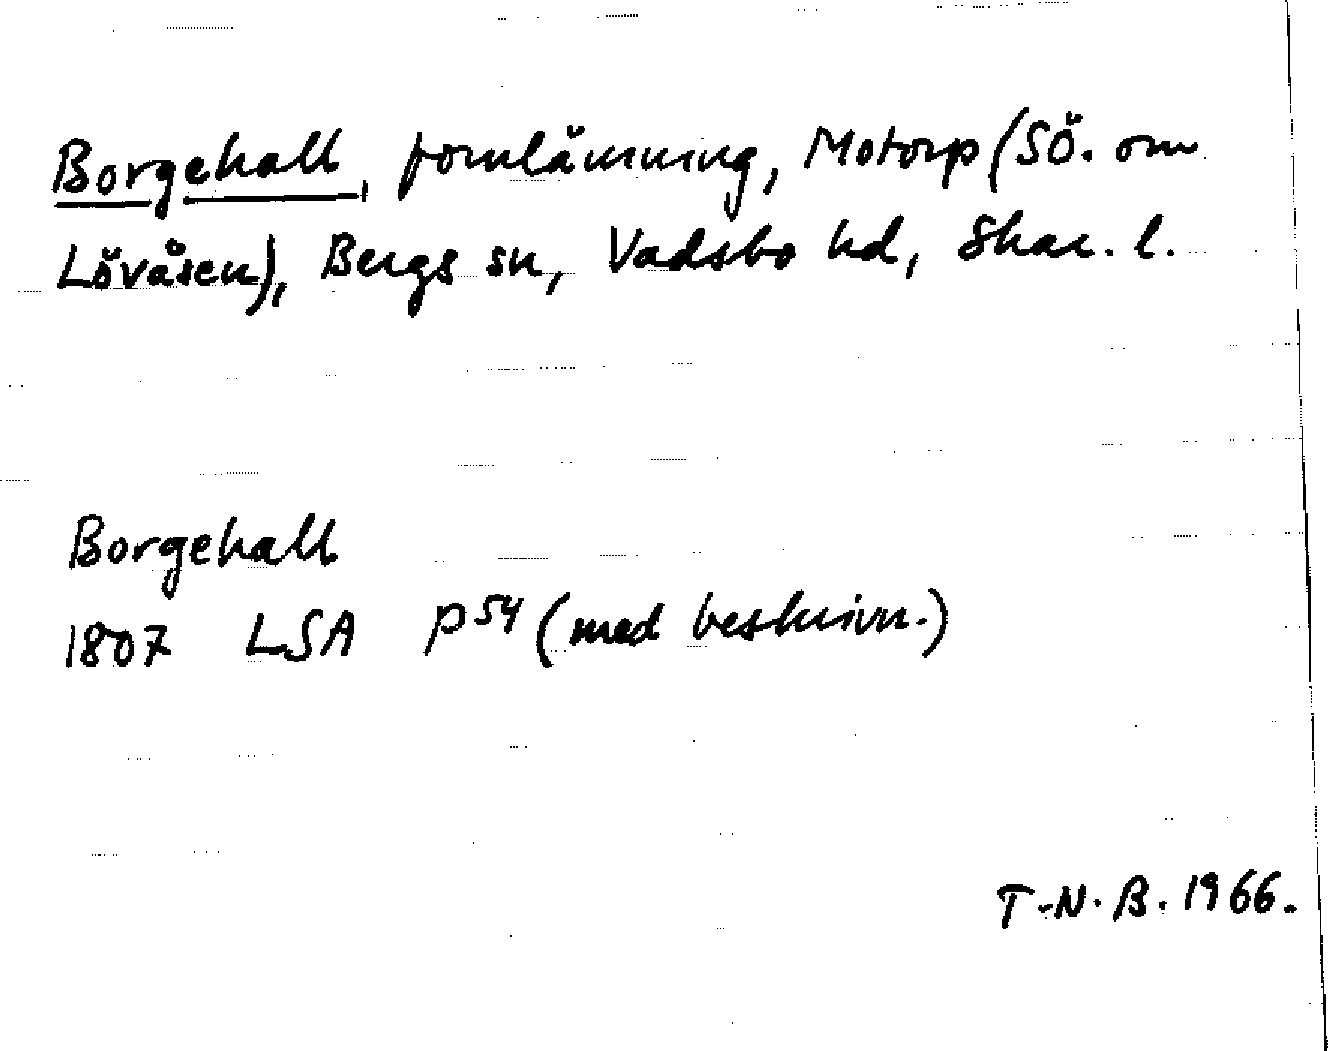 Borgehall, fornlämning, Motorp (SÖ. om
Lövåsen), Bergs sn, Vadsbo hd, Skar. l.
Borgehall
1807 LSA P 54 (med beskrivn.)
T-N.B. 1966.